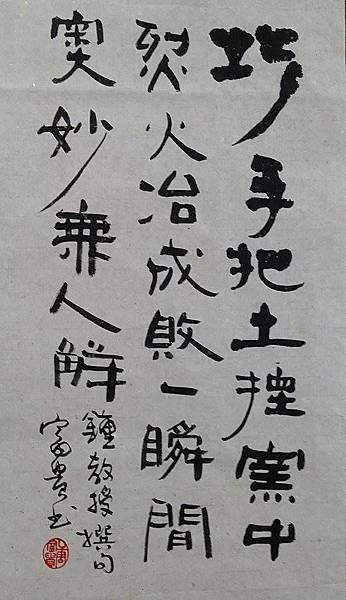 巧手把土捏窯中
烈火冶成敗一瞬間
奧妙無人解
鍾教授撰句
富貴书